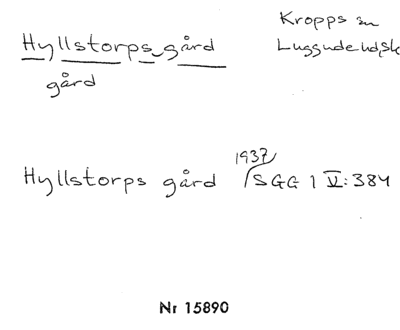 Hyllstorps gård
Kropps sn
Luggude hd, Sk
gård
Hyllstorps gård 1937 / SGG 1 V:384
Nr 15890